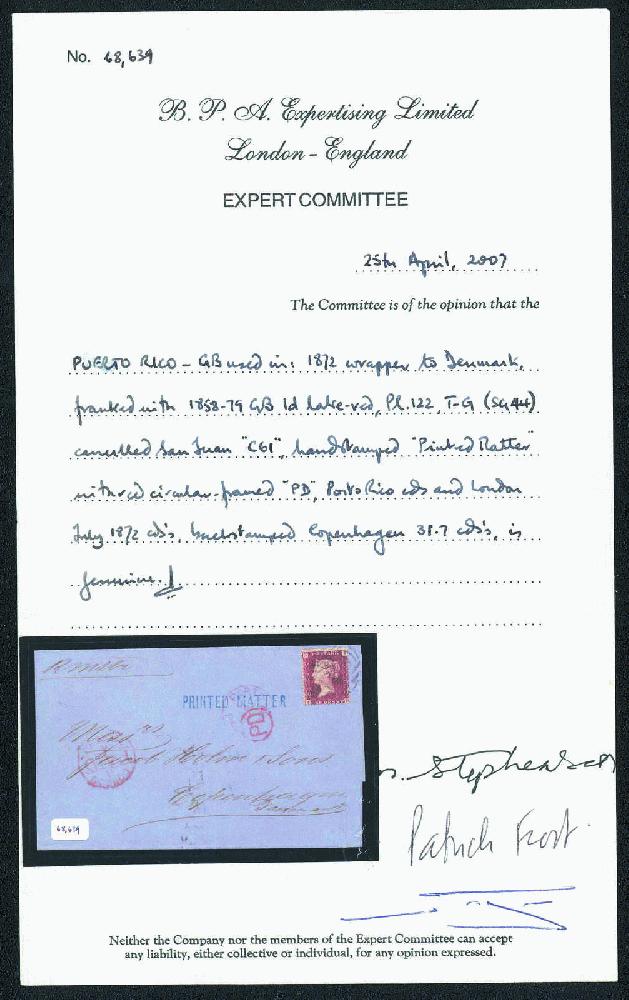 No. 68,639
B. P. A. Expertising Limited
London - England
EXPERT COMMITTEE
25th April, 2007
The Committee is of the opinion that the
PUERTO RICO - GB used in: 1872 wrapper to Denmark,
franked with 1858-79 GB 1d lake-red, Pl.122, T-G (SG44)
cancelled San Juan "C61", handstamped "Printed Matter"
with red circular-framed "PD", Porto Rico cds and London
July 1872 cds's, backstamped Copenhagen 31.7 cds's, is
genuine.
PRINTED MATTER
PD
Messrs
Jacob Holm & Sons
Copenhagen
Denmark
68,639
Stephenson
Patrick Frost
Neither the Company nor the members of the Expert Committee can accept
any liability, either collective or individual, for any opinion expressed.